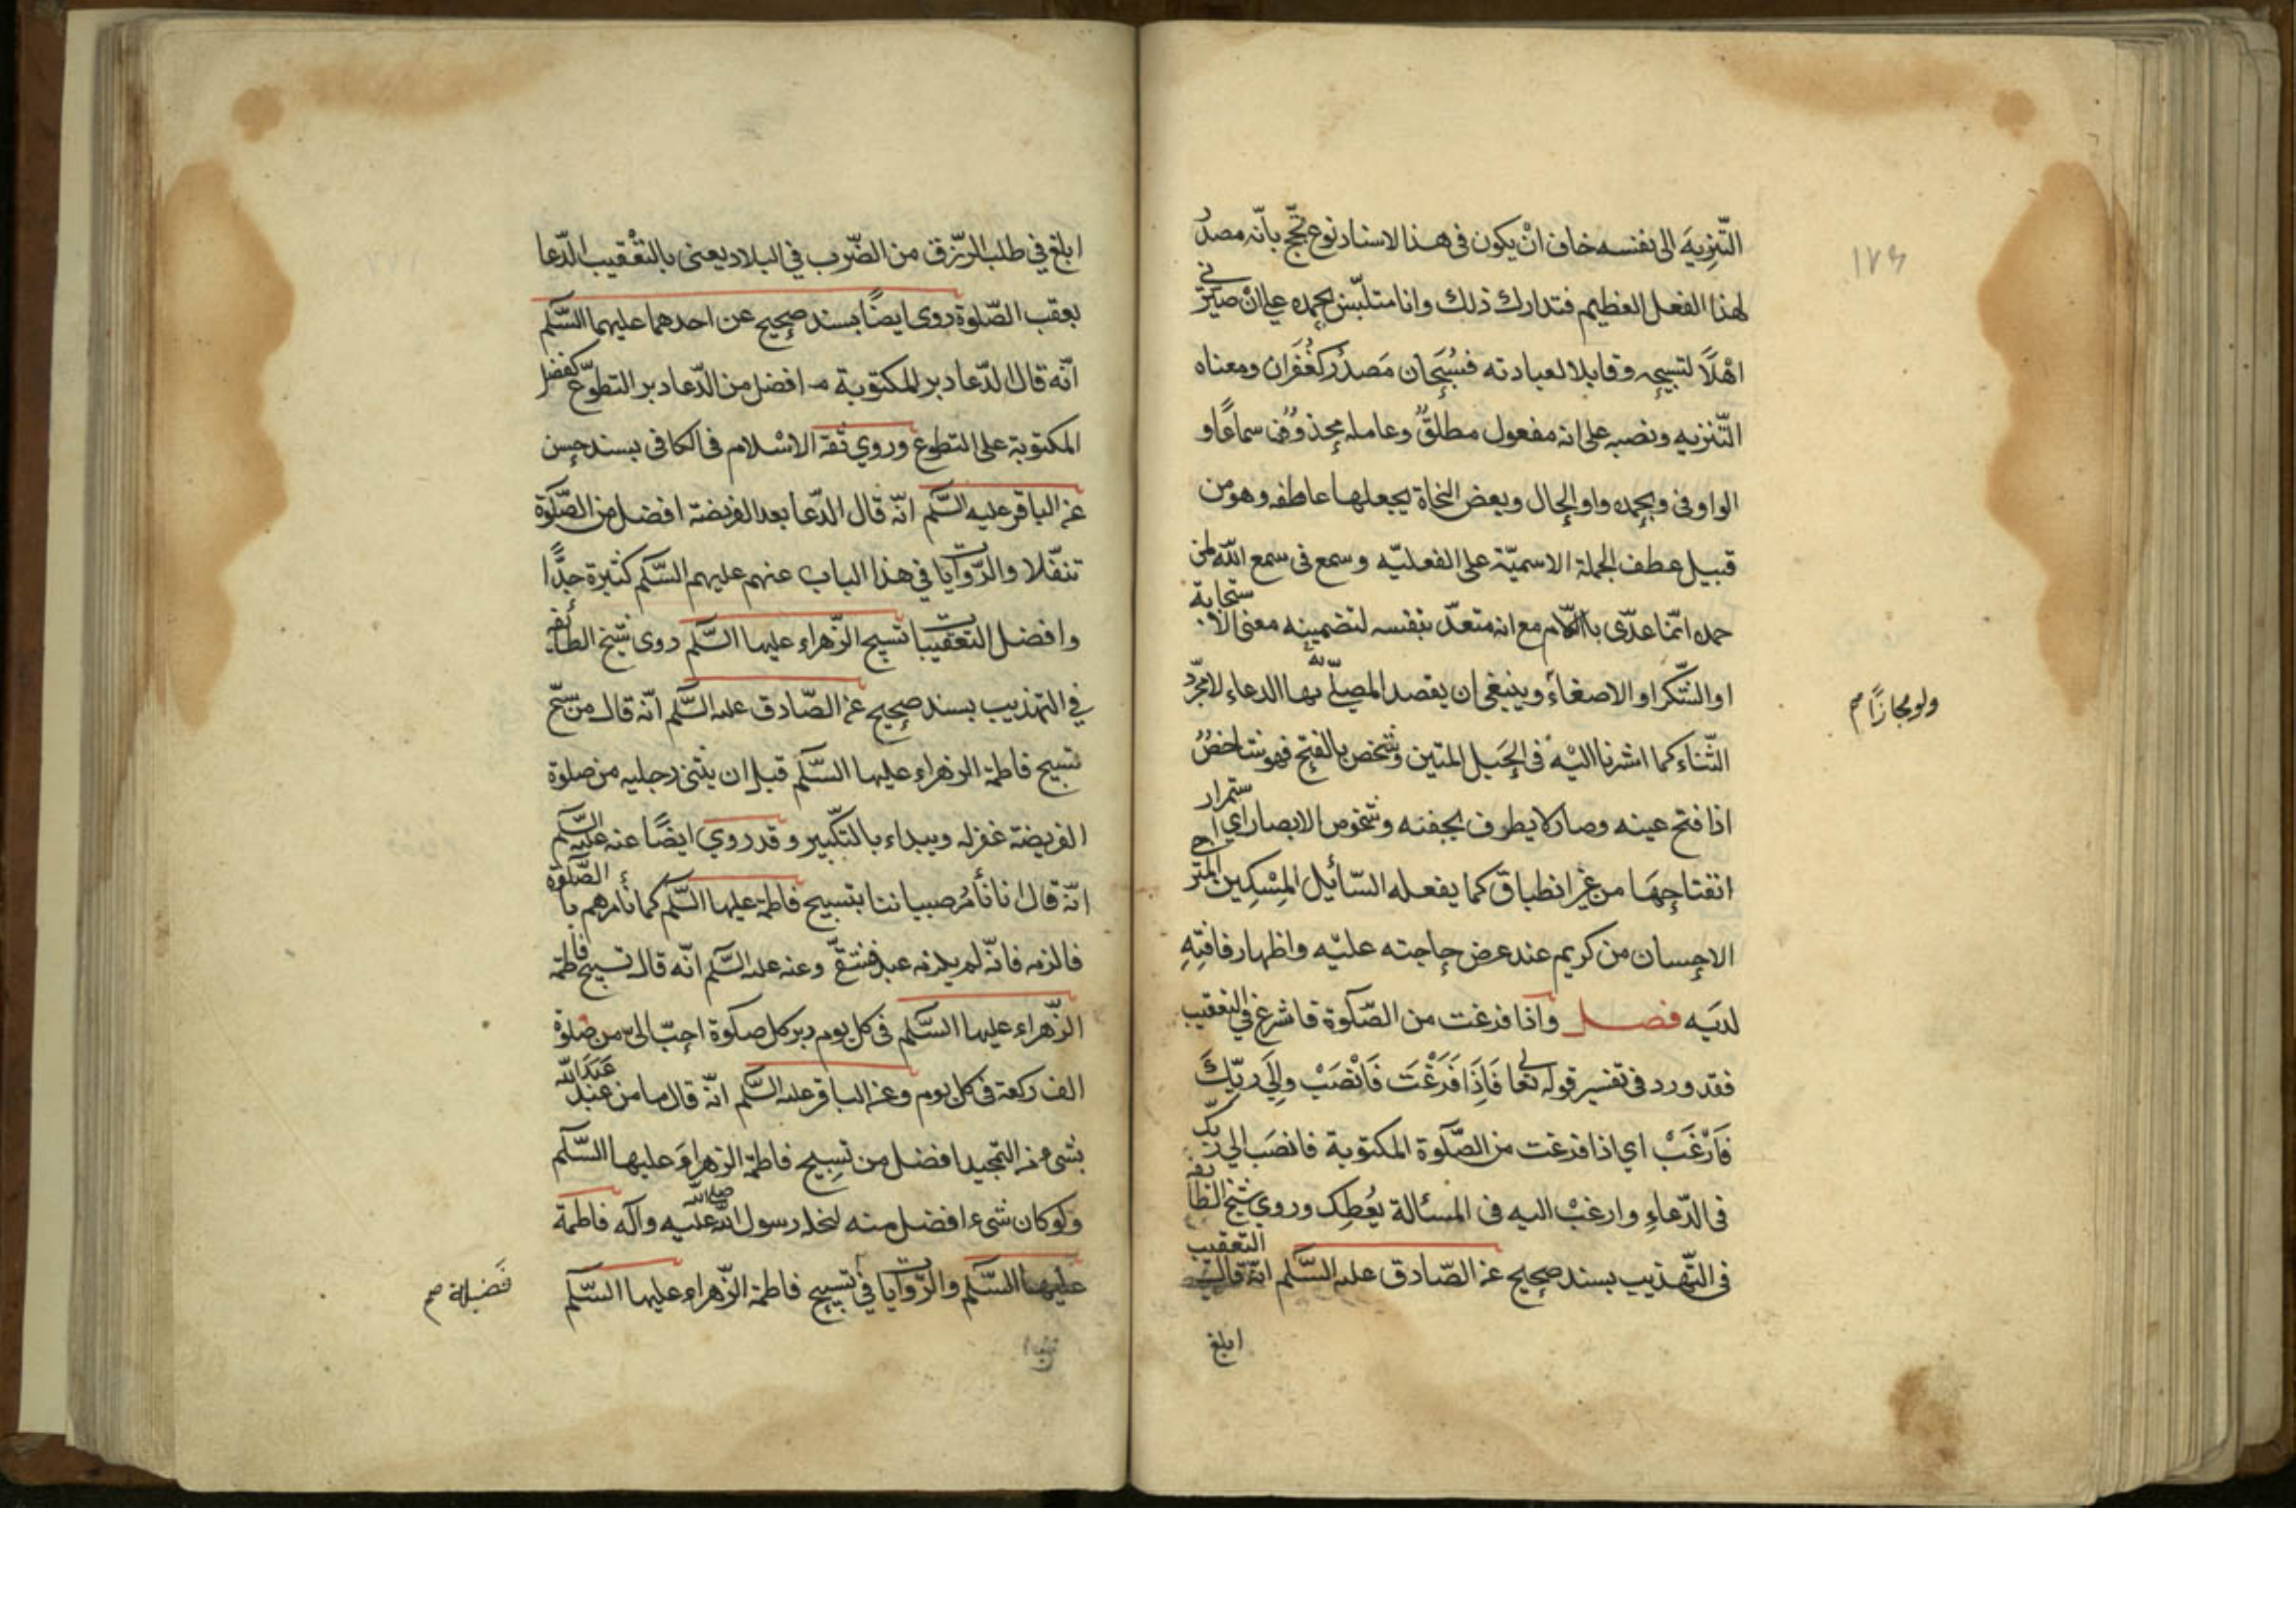 ١٧٤
التّنزيهَ الى نفسه خاف انْ يكون فى هذا الاسناد نوع تبجّح بانّه مصدرُ
لهذا الفعل العظيم فتدارك ذلك وانا متلبّس بحمده على انْ صيّرنى
اهْلًا لتسبيحه وقابلا لعبادته فسُبْحَان مَصدرُ كغُفْرَان ومعناه
التّنزيه ونصبه على انه مفعول مطلقٌ وعامله محذوفٌ سماعًا و
الواو فى وبحمده واو الحال وبعض النحاة يجعلها عاطفه وهو من
قبيل عطف الجملة الاسميّة على الفعليّه وسمع فى سمع اللّه لمن
حمده انّما عدّى باللّام مع انه متعدّ بنفسه لتضمينه معنى الاستجابة
او الشّكر او الاصغاء وينبغى ان يقصد المصلّى بها الدعاء لا مجرّد
ولو مجازًا صح
الثّناء كما اشرنا اليْه فى الحَبل المتين وشخص بالفتح فهو شاخصٌ
اذا فتح عينه وصار لا يطرف بجفنه وشخوص الابصار اى استمرار
انفتاحِهَا من غير انطباق كما يفعله السّائِل المِسْكِين المترجى
الاحسان من كريم عند عرض حاجته عليْه واظهار فاقتِهِ
لديَه فصـــل واذا فرغت من الصّلوة فاشرع فى التعقيب
فقد ورد فى تفسير قوله تعالى فَاِذَا فَرَغْتَ فَانْصَبْ وَاِلَى رَبِّكَ
فَارْغَبْ اى اذا فرغت من الصّلوة المكتوبة فانصَب الى ربّك
فى الدّعاءِ وارغبْ اليه فى المسئالة يُعْطِك وروى شيخ الطائفه
فى التّهذيب بسند صحيح عن الصّادق عليه السَّلم انّه قال التعقيب
ابلغ
ابلغ فى طلب الرّزق من الضّرب فى البلاد يعنى بالتعْقيب الدّعا
بعقب الصّلوة روى ايضًا بسند صحيح عن احدهما عليهما السَّلم
انّه قال الدّعا دبر المكتوبة افضل من الدّعا دبر التطوّع كفضل
المكتوبة على التطوع وروى ثقة الاسْلام فى الكافى بسند حسن
عن الباقر عليه السَّلم انّه قال الدّعا بعد الفريضة افضل من الصَّلوة
تنفّلا والرّوايات فى هذا الباب عنهم عليهم السَّلم كثيرة جدًّا
وافضل التعقيبات تسبيح الزّهراء عليها السَّلم روى شيخ الطائفه
فى التهذيب بسند صحيح عن الصّادق عليه السَّلم انّه قال من سبّح
تسبيح فاطمة الزهراء عليها السَّلم قبل ان يثنى رجليه من صلوة
الفريضة غفر له ويبداء بالتكّبير وقد روى ايضًا عنه عليه السَّلم
انّه قال انا نأمُر صبياننا بتسبيح فاطمة عليها السَّلم كما نأمرهم بالصّلوة
فالزمه فانّه لم يلزمه عبد فشقى وعنه عليه السَّلم انّه قال تسبيح فاطمة
الزّهراء عليها السَّلم فى كل يوم دبر كل صلوة احبّ الىّ من صلوة
الف ركعة فى كل يوم وعن الباقر عليه السَّلم انّه قال ما من عبد عَبَدَ اللّه
بشىء من التمجيد افضل من تسبيح فاطمة الزهراء عليها السَّلم
ولو كان شىء افضل منه لنحله رسول اللّه صلى اللّه عليه وآله فاطمة
عليها السَّلم والرّوايات فى تسبيح فاطمة الزّهراء عليها السَّلم
فضيلة صح